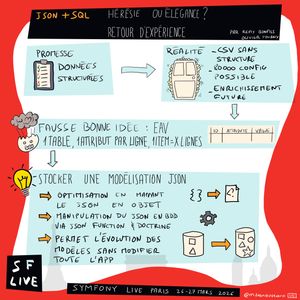 JSON + SQL
HÉRÉSIE OU ÉLÉGANCE ?
RETOUR D'EXPÉRIENCE
PAR RÉMY
PROMESSE
DONNÉES
STRUCTURÉES
RÉALITÉ
- CSV SANS
STRUCTURE
CONFIG
POSSIBLE
- ENRICHISSEMENT
FUTUR
FAUSSE BONNE IDÉE : EAV
1 TABLE, 1 ATTRIBUT PAR LIGNE, 1 ITEM = X LIGNES
ID
ATTRIBUTE
VALUE
STOCKER UNE MODÉLISATION JSON
→ OPTIMISATION EN MAPPANT
LE JSON EN OBJET
→ MANIPULATION DU JSON EN BDD
VIA JSON FUNCTION & DOCTRINE
→ PERMET L'ÉVOLUTION DES
MODÈLES SANS MODIFIER
TOUTE L'APP
{ }
SF
LIVE
SYMFONY LIVE PARIS 26-27 MARS